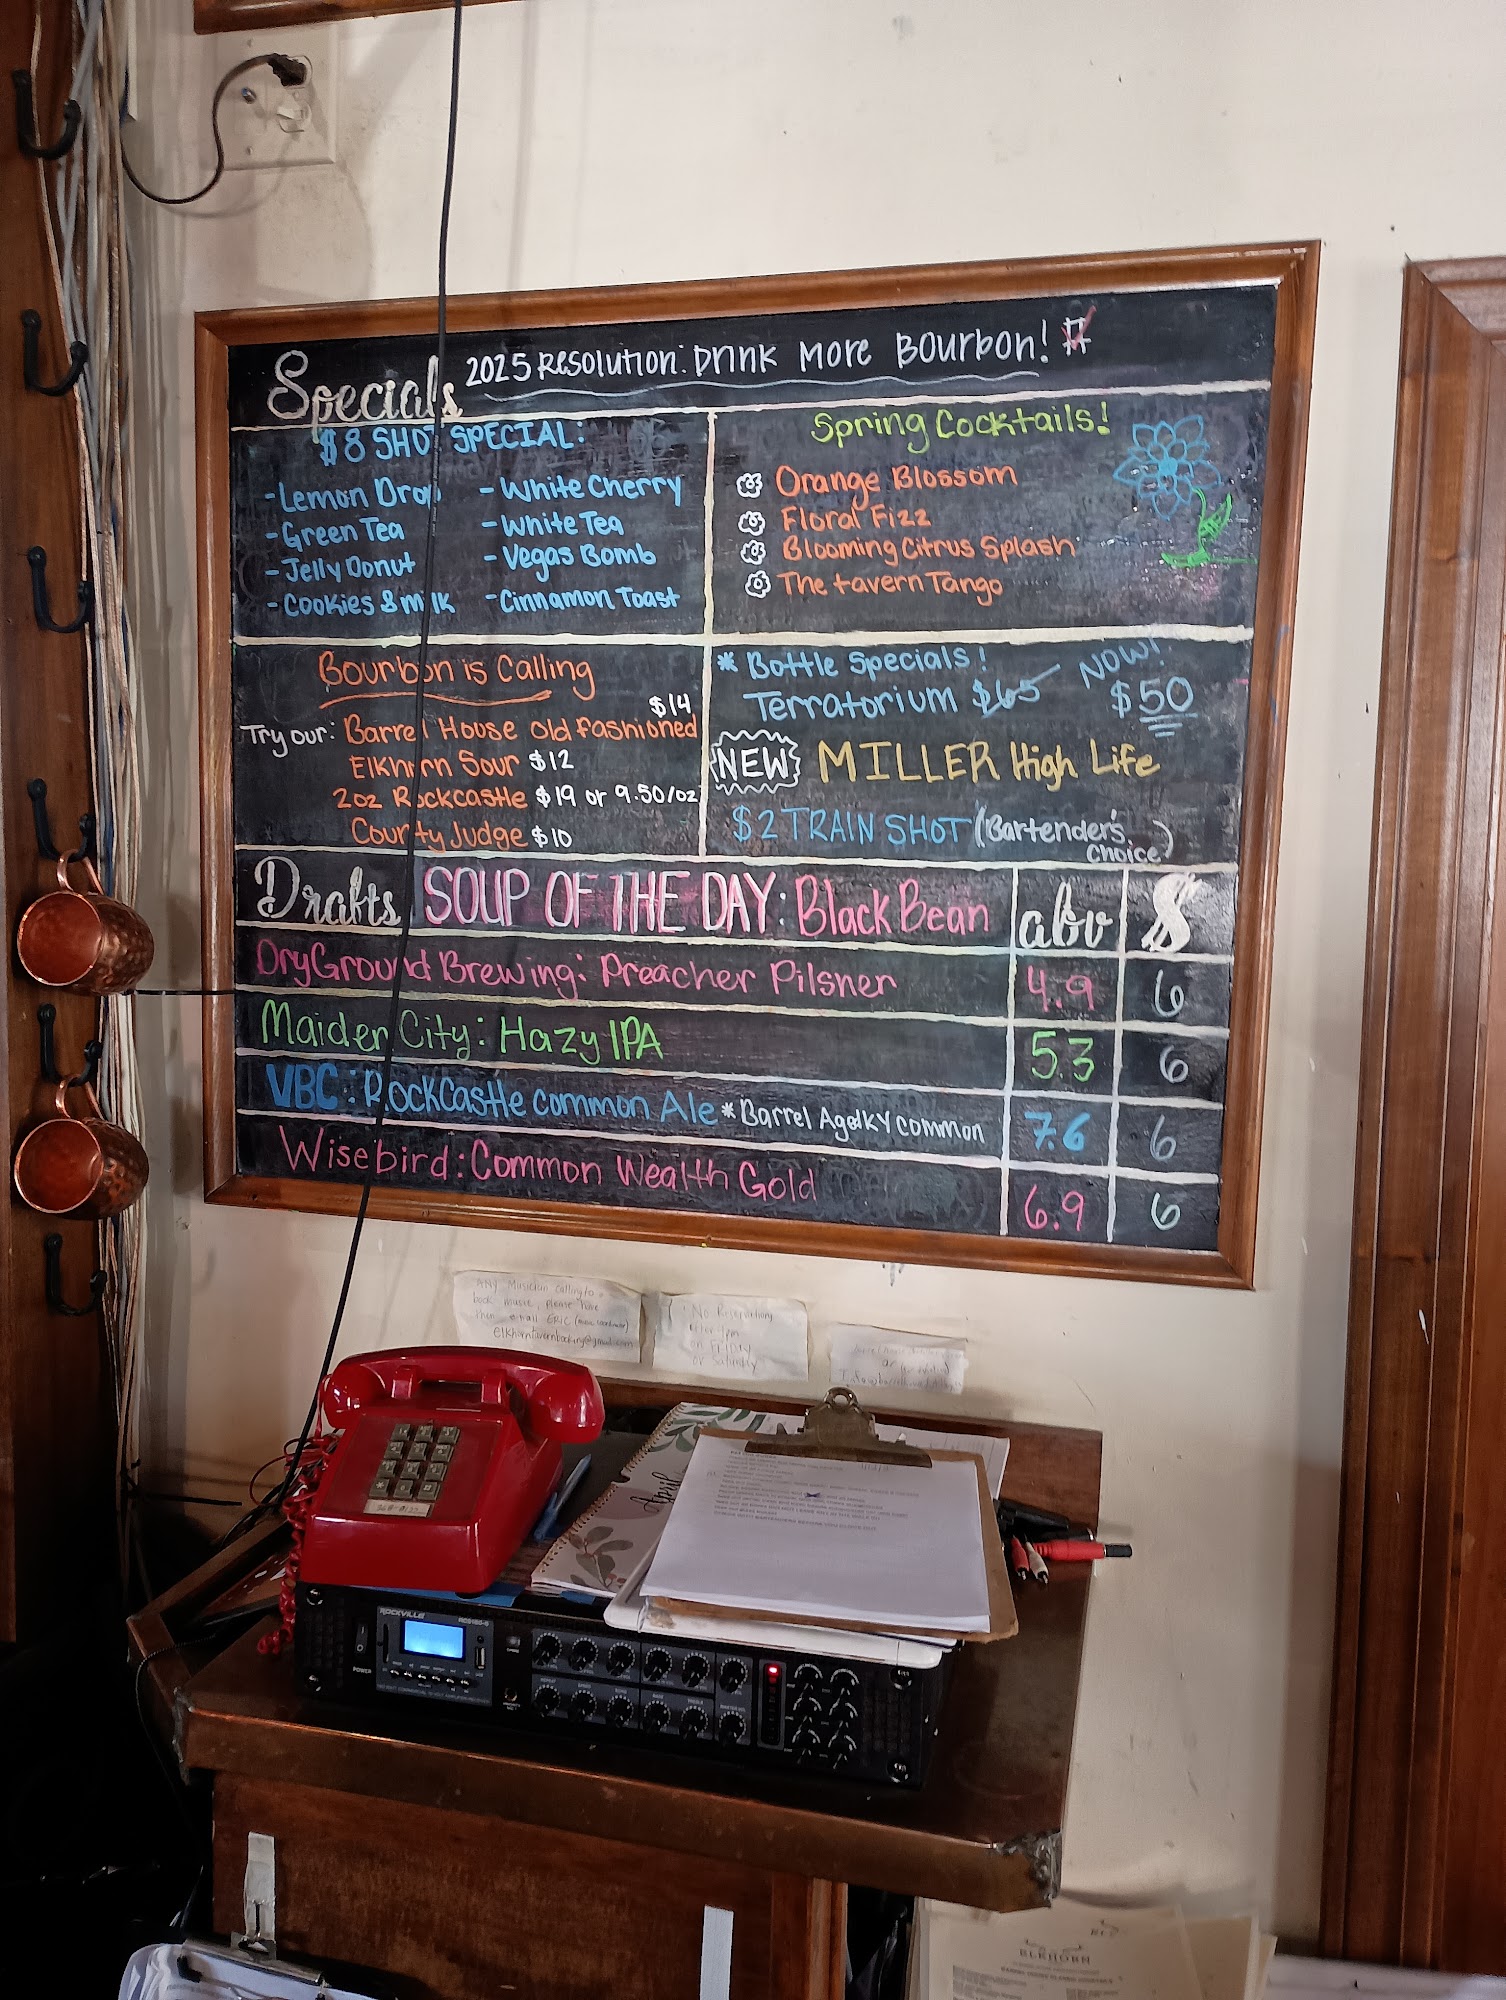 Specials
2025 Resolution: Drink More Bourbon!
$8 SHOT SPECIAL:
-Lemon Drop
-Green Tea
-Jelly Donut
-Cookies & milk
-White Cherry
-White Tea
-Vegas Bomb
-Cinnamon Toast
Spring Cocktails!
Orange Blossom
Floral Fizz
Blooming Citrus Splash
The Tavern Tango
Bourbon is Calling
$14
Try our: Barrel House Old Fashioned
Elkhorn Sour $12
2oz Rockcastle $19 or 9.50/oz
County Judge $10
* Bottle Specials!
Terratorium $65 NOW! $50
NEW MILLER High Life
$2 TRAIN SHOT (Bartender's
Choice)
Drafts SOUP OF THE DAY: Black Bean abv $
DryGround Brewing: Preacher Pilsner 4.9 6
Maiden City: Hazy IPA 5.3 6
VBC: RockCastle Common Ale *Barrel Aged KY Common 7.6 6
Wisebird: Common Wealth Gold 6.9 6
ANY Musician calling to
book music, please have
them email ERIC
elkhorntavernbooking@gmail.com
No Reservations
after 1pm
on Friday
or Saturday
April
ROCKVILLE
POWER
ELKHORN